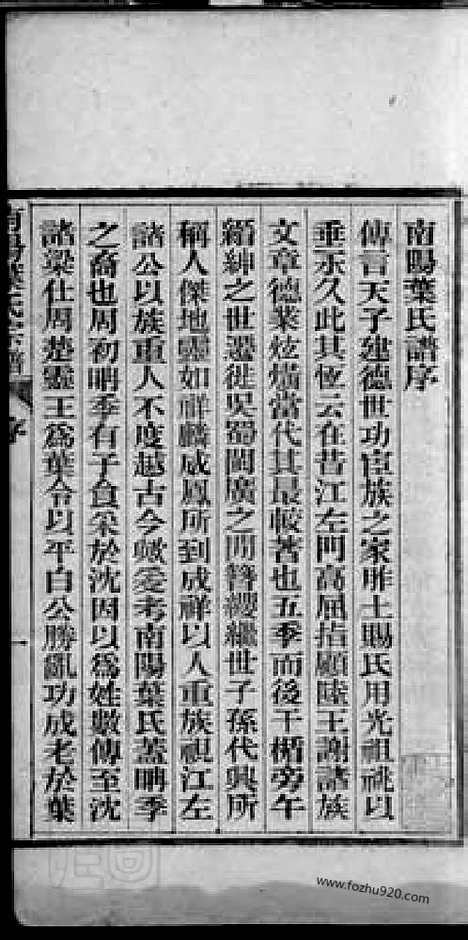 南陽葉氏譜序
傳言天子建德世功宦族之家胙土賜氏用光祖祧以
垂示久此其恆云在昔江左門高屈指顧陸王謝諸族
文章德業炫爛當代其最較著也五季而後干楯旁午
縉紳之世遷徙吳蜀閩廣之間簪纓繼世子孫代興所
稱人傑地靈如祥麟威鳳所到成祥以人重族視江左
諸公以族重人不度越古今歟爰考南陽葉氏蓋聃季
之裔也周初聃季有子食采於沈因以為姓數傳至沈
諸梁仕周楚靈王為葉令以平白公勝亂功成老於葉
南陽葉氏宗譜
序
一
www.fozhu920.com